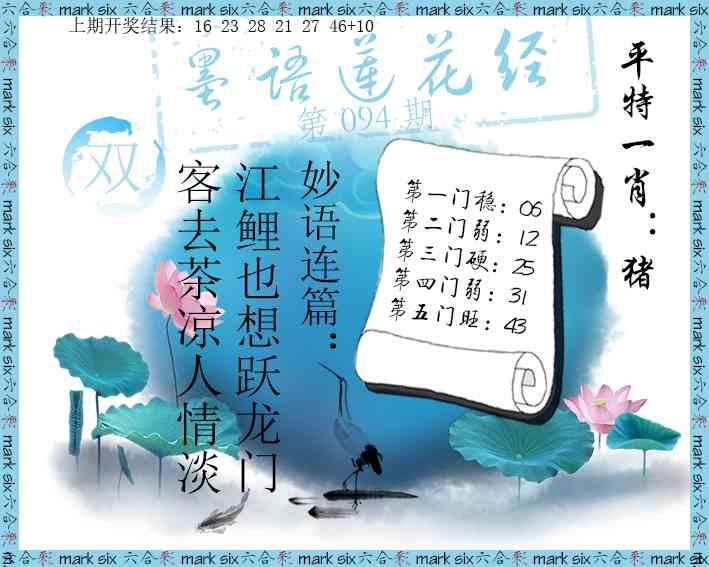 上期开奖结果：16 23 28 21 27 46+10
墨语莲花经
第 094 期
双
平特一肖：猪
妙语连篇：
江鲤也想跃龙门
客去茶凉人情淡
第一门稳：06
第二门弱：12
第三门硬：25
第四门弱：31
第五门旺：43
mark six六合彩 mark six六合彩 mark six六合彩 mark six六合彩 mark six六合彩